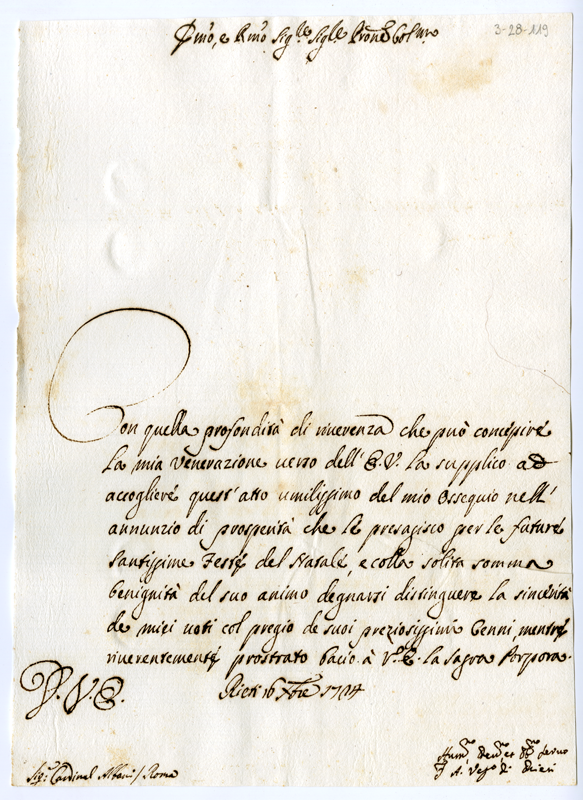 3-28-119
Emo, e Rmo Sigre Sigre Prone Colmo
Con quella profondità di riverenza che può concepire
la mia venerazione verso dell' E.V. la supplico ad
accogliere quest' atto umilissimo del mio ossequio nell'
annunzio di prosperità che le presagisco per le future
santissime Feste del Natale, e colla solita somma
benignità del suo animo degnarsi distinguere la sincerità
de miei voti col pregio de suoi preziosissimi Cenni, mentre
riverentemente prostrato bacio à V.E. la sagra Porpora.
Rieti 16 Xbre 1724
D. V. E.
Sigr Cardinal Albani / Roma
Humo Devmo et Obmo Servo
A. Vesco di Rieti